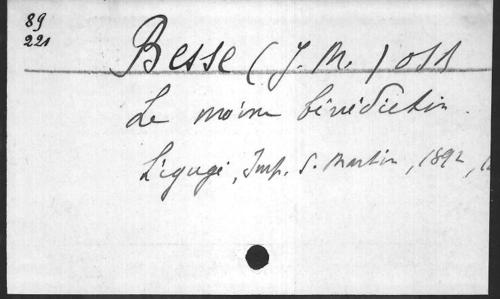 89
221
Besse (J. M.) OSB
Le moine bénédictin.
Ligugé, Imp. S. Martin, 1892,